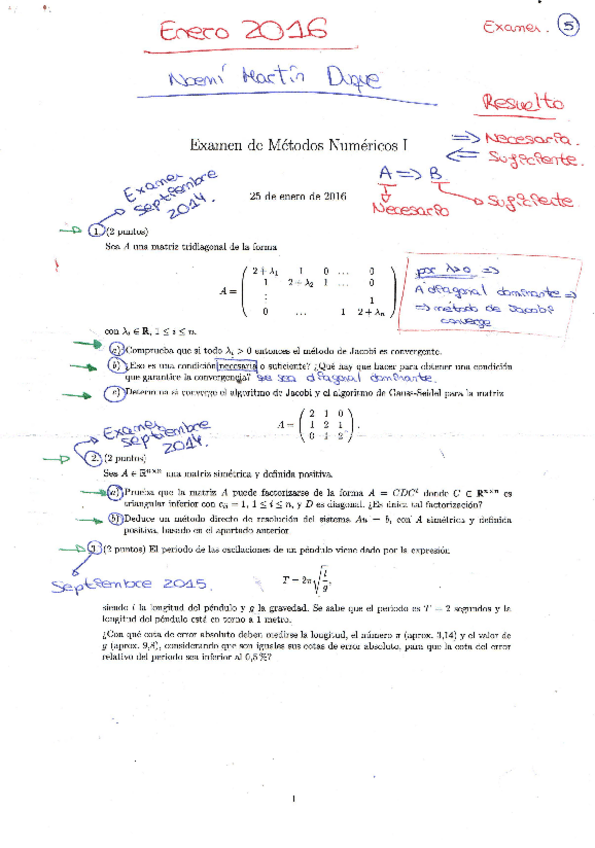 Enero 2016
Examen. 5
Noemí Martín Duque
Resuelto
Examen de Métodos Numéricos I
=> Necesaria.
<= Suficiente.
A => B
Examen Septiembre 2014.
25 de enero de 2016
Necesario
Suficiente
1. (2 puntos)
Sea A una matriz tridiagonal de la forma
A = ( 2 + λ₁ 1 0 ... 0
1 2 + λ₂ 1 ... 0
⋮ 1
0 ... 1 2 + λₙ )
por λ>0 =>
A diagonal dominante =>
=> método de Jacobi
converge
con λᵢ ∈ R, 1 ≤ i ≤ n.
a) Comprueba que si todo λᵢ > 0 entonces el método de Jacobi es convergente.
b) ¿Eso es una condición necesaria o suficiente? ¿Qué hay que hacer para obtener una condición
que garantice la convergencia? que sea diagonal dominante.
c) Determina si converge el algoritmo de Jacobi y el algoritmo de Gauss-Seidel para la matriz
A = ( 2 1 0
1 2 1
0 1 2 ) .
Examen
septiembre
2014.
2. (2 puntos)
Sea A ∈ Rⁿˣⁿ una matriz simétrica y definida positiva.
a) Prueba que la matriz A puede factorizarse de la forma A = CDCᵗ donde C ∈ Rⁿˣⁿ es
triangular inferior con cᵢᵢ = 1, 1 ≤ i ≤ n, y D es diagonal. ¿Es única tal factorización?
b) Deduce un método directo de resolución del sistema Au = b, con A simétrica y definida
positiva, basado en el apartado anterior.
3. (2 puntos) El periodo de las oscilaciones de un péndulo viene dado por la expresión
Septiembre 2015.
T = 2π√(l/g),
siendo l la longitud del péndulo y g la gravedad. Se sabe que el periodo es T = 2 segundos y la
longitud del péndulo está en torno a 1 metro.
¿Con qué cota de error absoluto deben medirse la longitud, el número π (aprox. 3,14) y el valor de
g (aprox. 9,8), considerando que son iguales sus cotas de error absoluto, para que la cota del error
relativo del periodo sea inferior al 0,5 %?
1